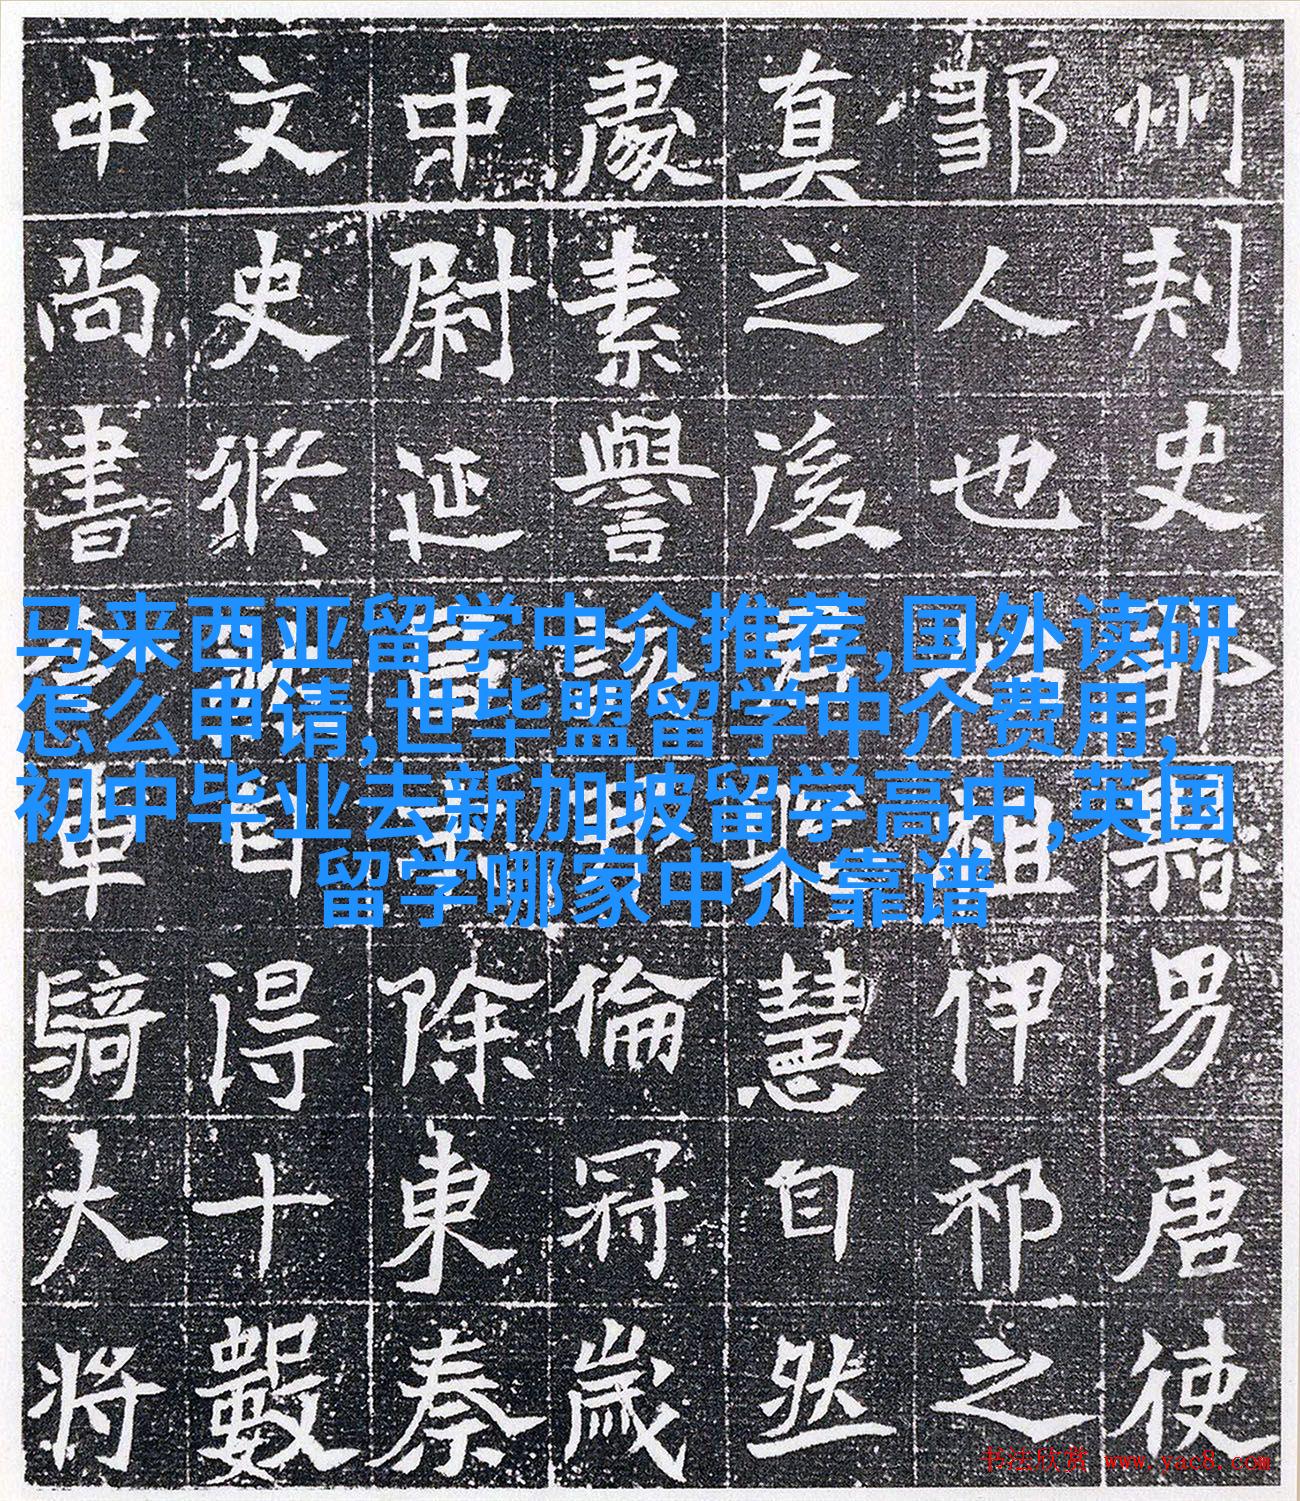 州刾史鄒縣男唐使
鄒人也始祖伊祁之
真之後
慧自然
處素譽
倫冠歲
中尉延
除東秦
文史
得十數
中尚書
車騎大將
马来西亚留学中介推荐,国外读研
怎么申请,世毕盟留学中介费用,
初中毕业去新加坡留学高中,英国
留学哪家中介靠谱
书法欣赏 www.yac8.com